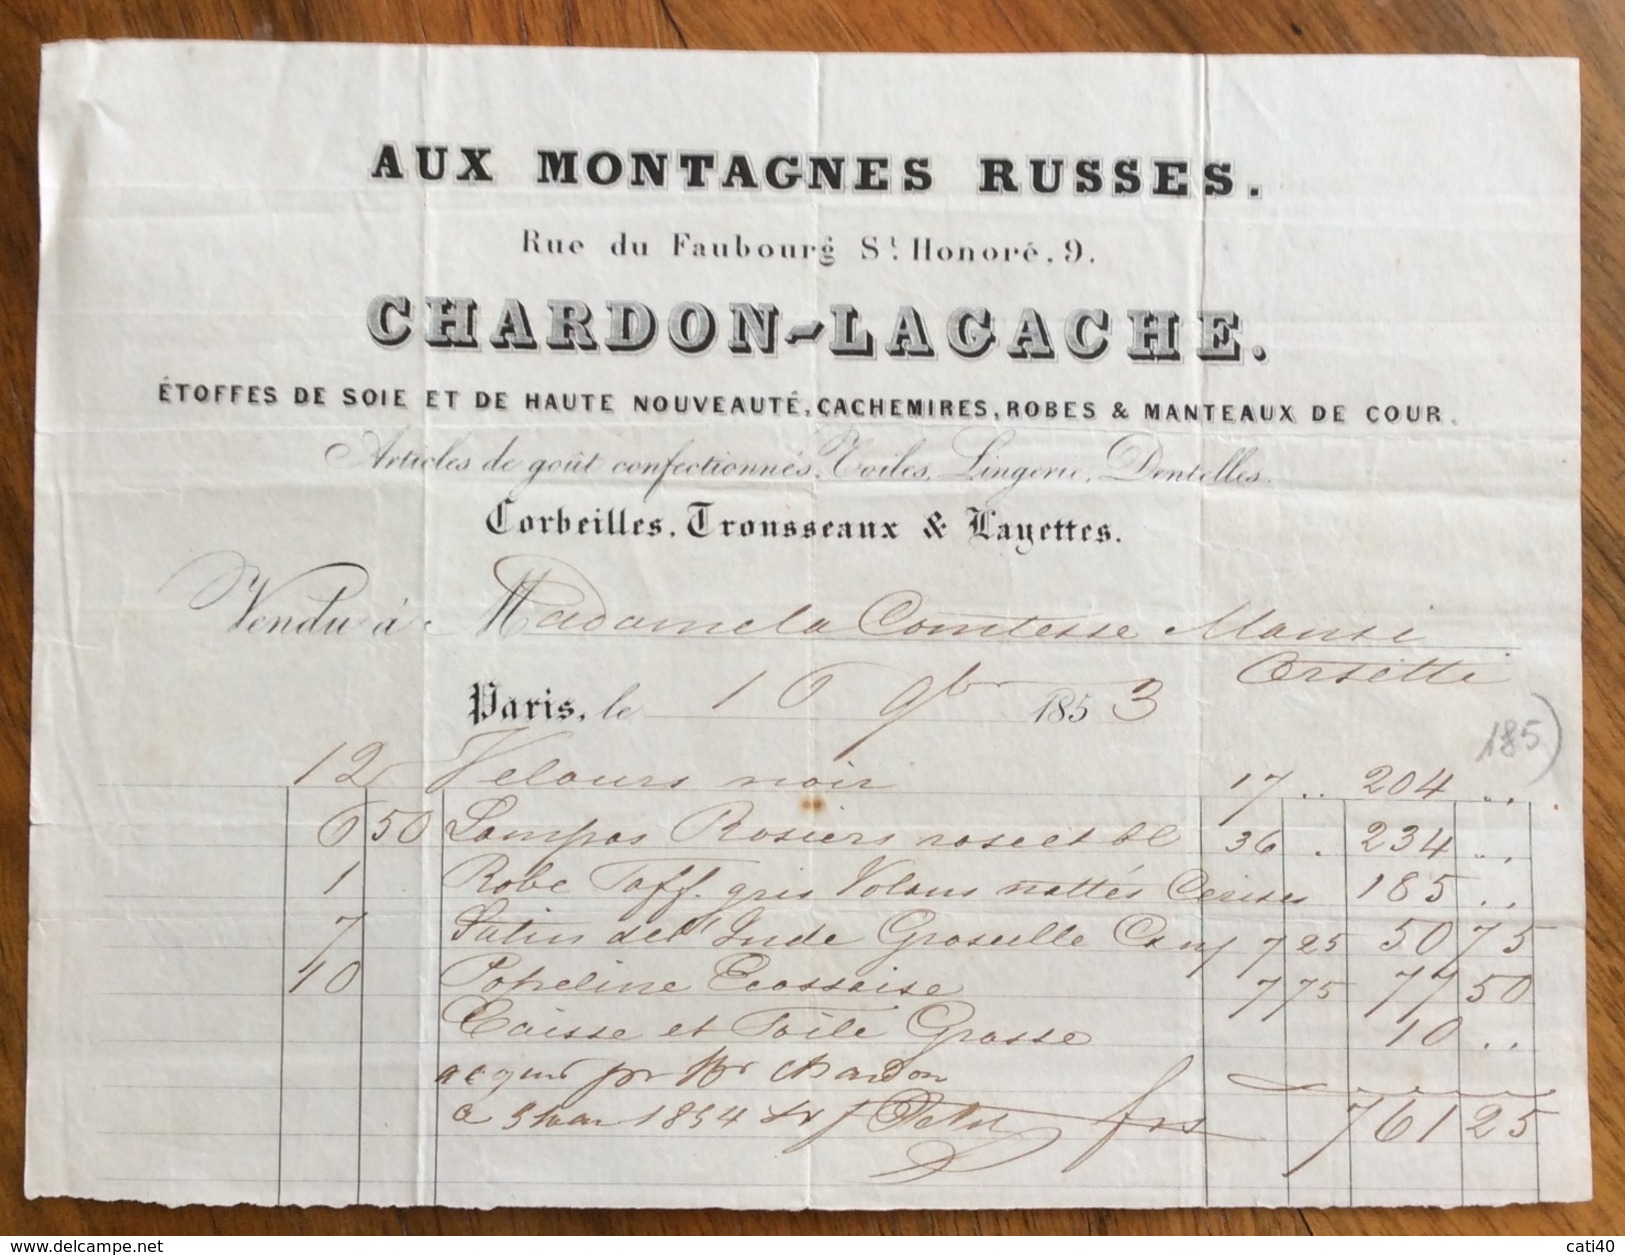 AUX MONTAGNES RUSSES.
Rue du Faubourg St. Honoré, 9.
CHARDON-LAGACHE.
ÉTOFFES DE SOIE ET DE HAUTE NOUVEAUTÉ, CACHEMIRES, ROBES & MANTEAUX DE COUR.
Articles de goût confectionnés, Toiles, Lingerie, Dentelles.
Corbeilles, Trousseaux & Layettes.
Vendu à Madame la Comtesse Mansi
Orsetti
Paris, le 16 9br 1853
185)
12 Velours noir 17 .. 204 ..
6 50 Lampas Rosiers rose et bl 36 . 234 ..
1 Robe Taff. gris Volans nattés Cerises 185 ..
7 Satin de l'Inde Groseille 7 25 50 75
10 Popeline Ecossaise 7 75 77 50
Caisse et Toile Grasse 10 ..
pr Mr Chardon
a 3 1854 frs 761 25
cati40
www.delcampe.net